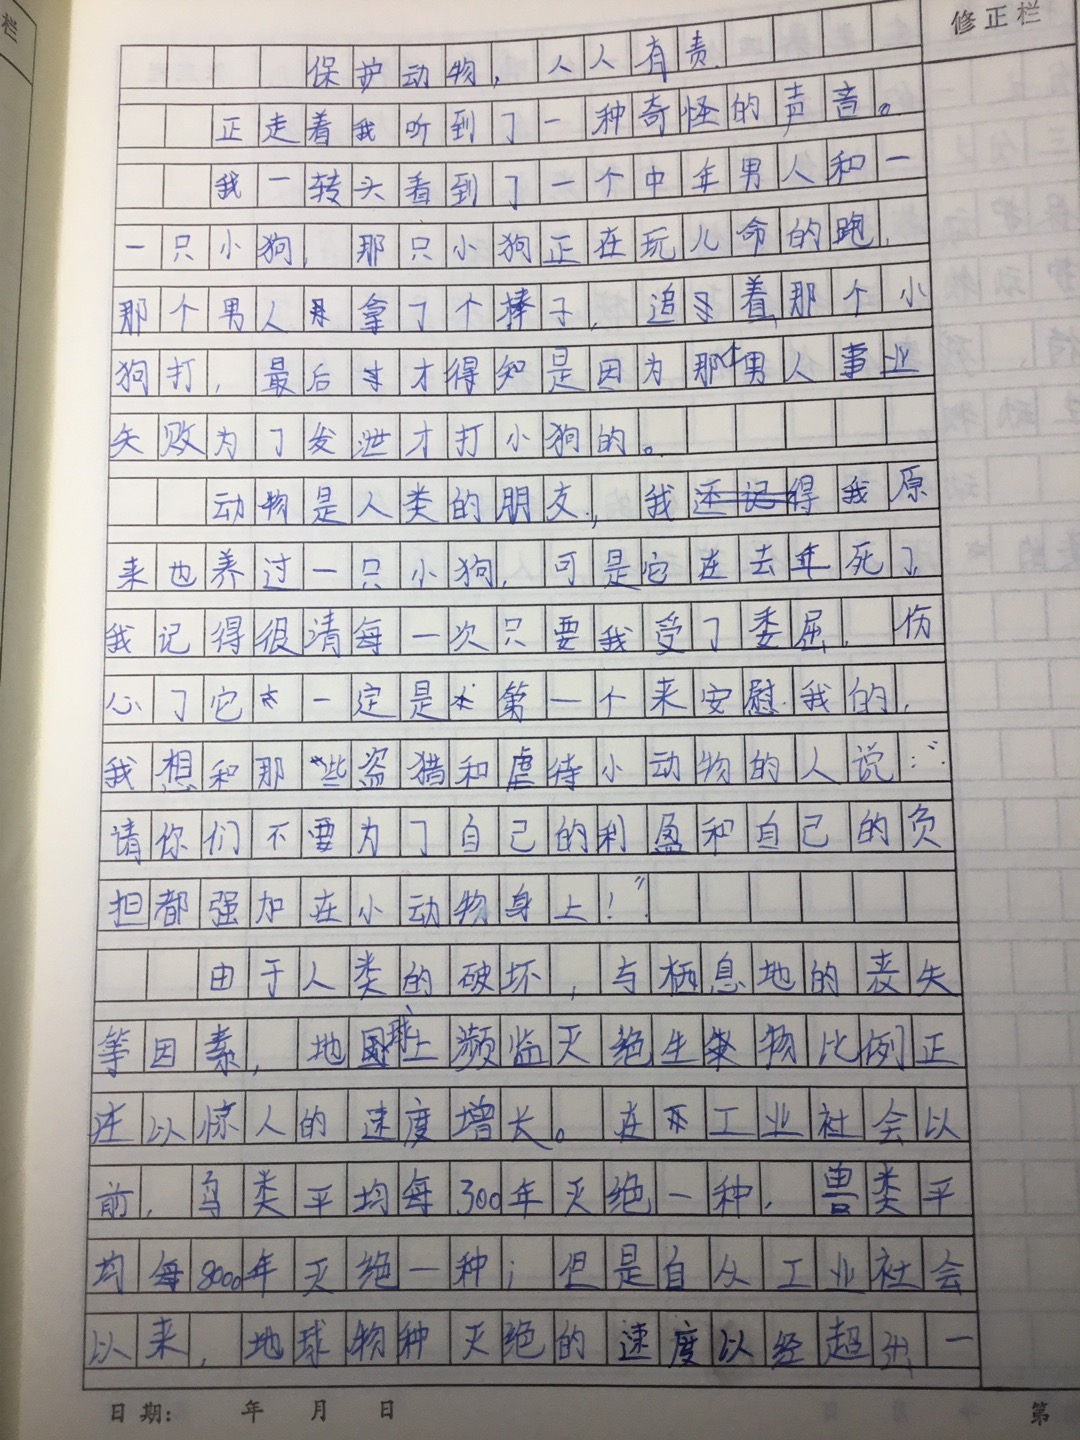 栏
修正栏
保护动物，人人有责
正走着我听到了一种奇怪的声音。
我一转头看到了一个中年男人和一
一只小狗，那只小狗正在玩儿命的跑，
那个男人拿了个棒子，追着那个小
狗打，最后才得知是因为那个男人事业
失败为了发泄才打小狗的。
动物是人类的朋友，我还记得我原
来也养过一只小狗，可是它在去年死了
我记得很清每一次只要我受了委屈，伤
心了它一定是第一个来安慰我的，
我想和那些盗猎和虐待小动物的人说：“
请你们不要为了自己的利盈和自己的负
担都强加在小动物身上！”
由于人类的破坏，与栖息地的丧失
等因素，地球上濒临灭绝生物比例正
在以惊人的速度增长。在工业社会以
前，鸟类平均每300年灭绝一种，兽类平
均每8000年灭绝一种；但是自从工业社会
以来，地球物种灭绝的速度以经超出一
日期： 年 月 日
第